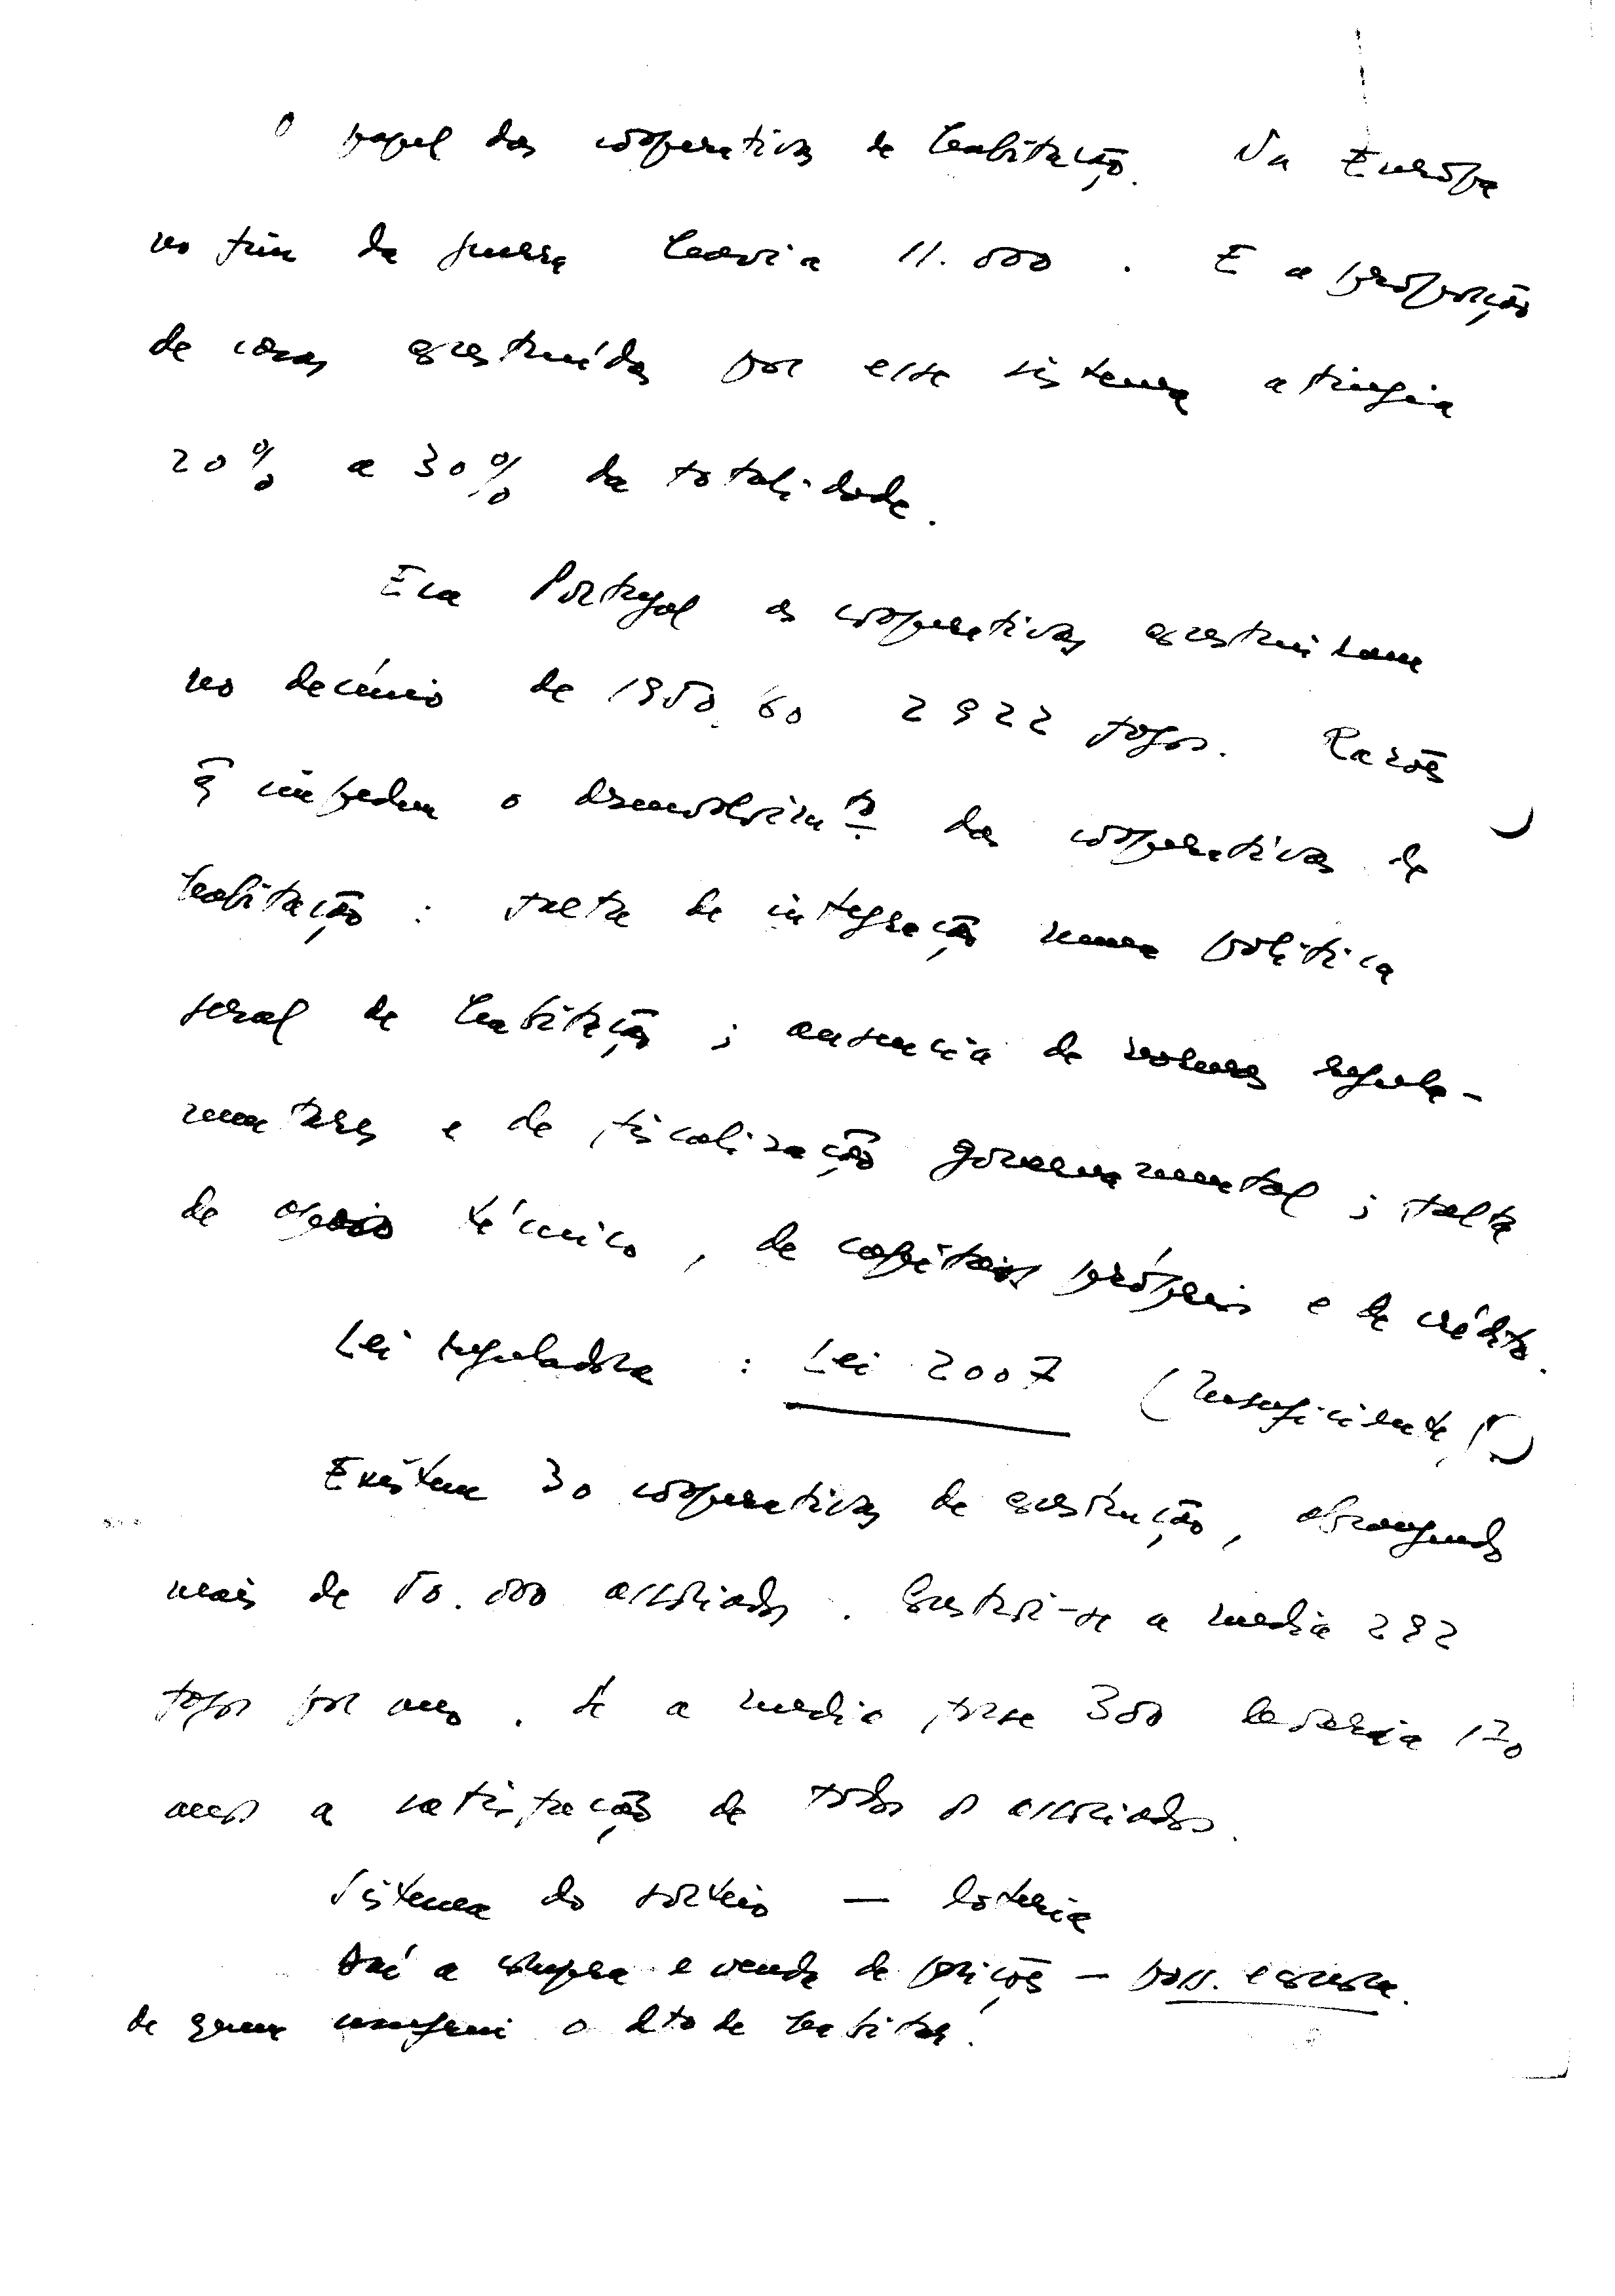 O papel das cooperativas de habitação. Na Europa
no fim da guerra havia 11.000. E a proporção
de casas construídas por esse sistema atingia
20% a 30% da totalidade.
Em Portugal as cooperativas construiram
no decénio de 1950.60 2922 fogos. Razões
q̃ impedem o desenvolvim.to das cooperativas de
habitação: falta de integração numa política
geral de habitação; ausencia de normas regula-
mentares e de fiscalização governamental; falta
de apoio técnico, de capitais próprios e de crédito.
Lei reguladora: Lei 2007 (insuficiente!)
Existem 30 cooperativas de construção, abrangendo
mais de 50.000 associados. Constroi-se a media 292
fogos por ano. Se a media fosse 300 levaria 170
anos a satisfação de todos os associados.
Sistema do sorteio — lotaria
Daí a compra e venda de posições — poss. econom.
de quem o dto de habitar.